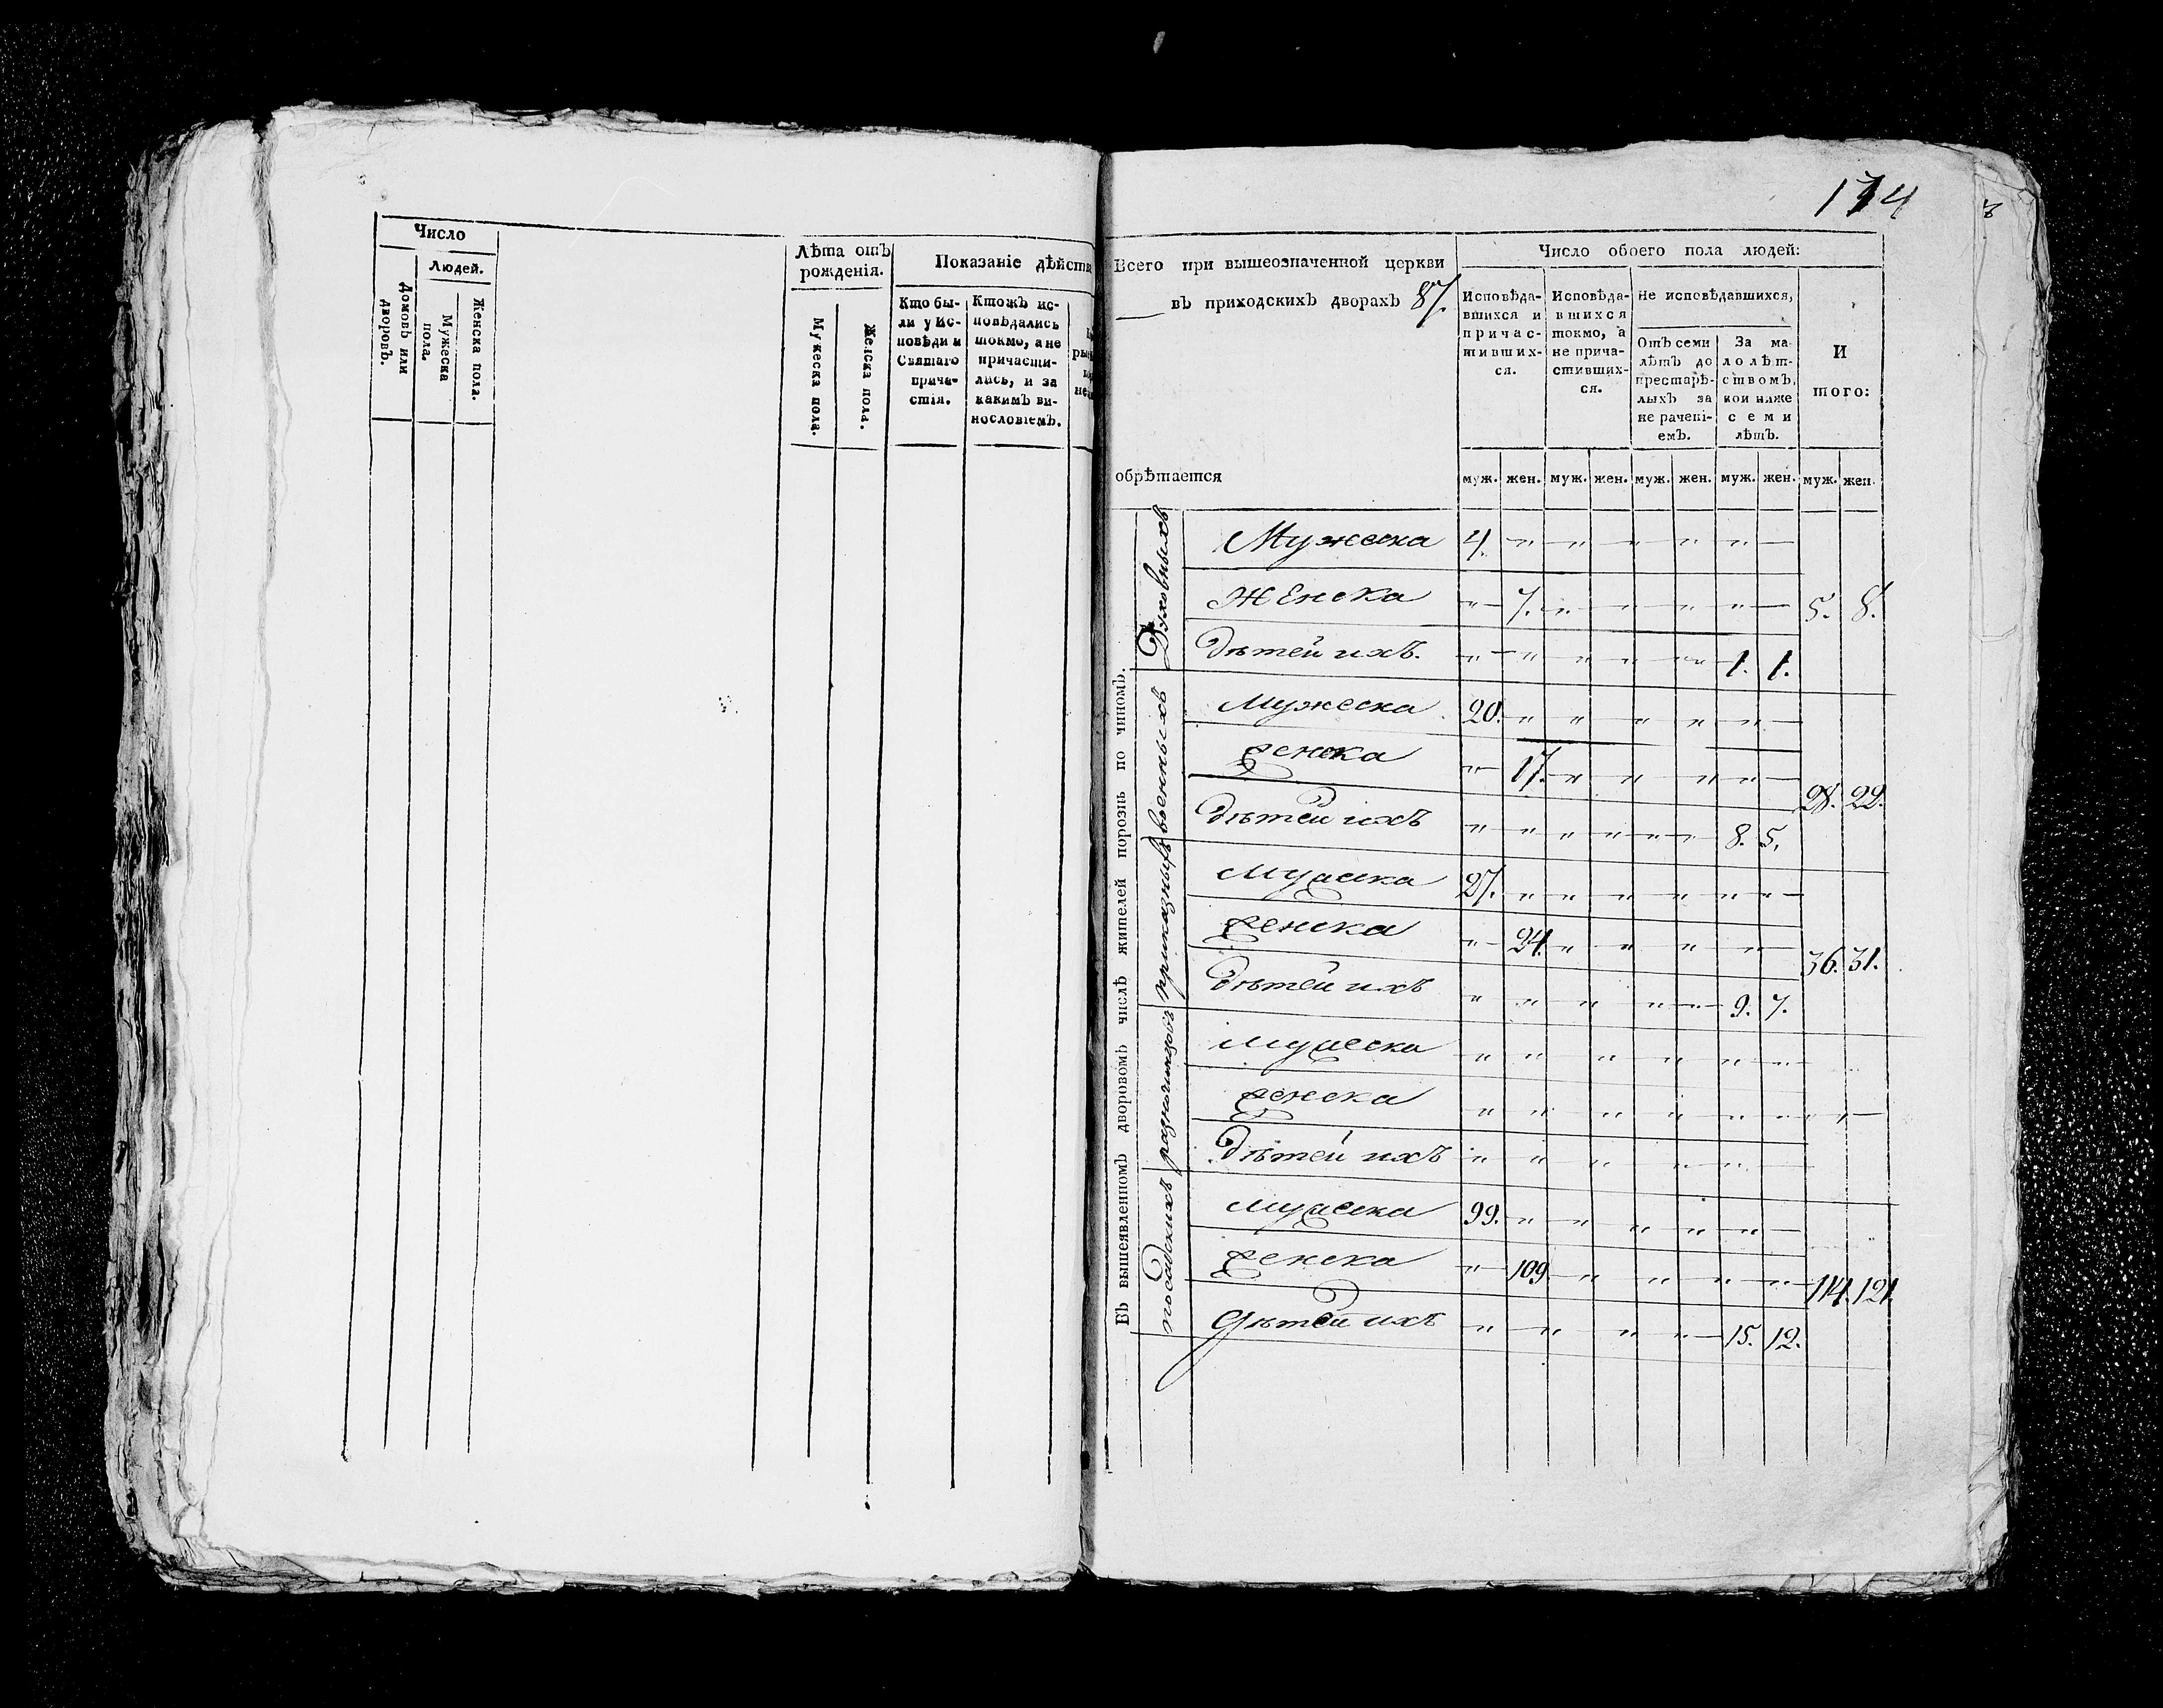 Число
Людей.
Домовъ или дворовъ.
Мужеска пола.
Женска пола.
Лѣта отъ рожденія.
Мужеска пола.
Женска пола.
Показаніе дѣйств
Кто бы-
ли у Ис-
повѣди и
Святаго
прича-
стія.
Ктожъ ис-
повѣдались
токмо, а не
причасти-
лись, и за
какимъ ви-
нословіемъ.
174
Всего при вышеозначенной церкви
въ приходскихъ дворахъ 87.
обрѣтается
Число обоего пола людей:
Исповѣда-
вшихся и
причас-
тивших-
ся.
Исповѣда-
вшихся
токмо, а
не прича-
стивших-
ся.
Не исповѣдавшихся,
Отъ семи
лѣтъ до
престарѣ-
лыхъ за
не рачені-
емъ.
За ма-
лолѣт-
ствомъ,
кои ниже
семи
лѣтъ.
И
того:
муж. жен. муж. жен. муж. жен. муж. жен. муж. жен.
Въ вышеявленномъ дворовомъ числѣ жителей порознь по чиномъ.
Духовныхъ
Мужеска 4. " " " " "
Женска " 7. " " " " 5. 8.
Дѣтей ихъ. " " " " " 1. 1.
военныхъ
Мужеска 20. " " " " "
женска " 17. " " " " 28. 22.
Дѣтей ихъ " " " " " " 8. 5.
приказныхъ
мужеска 27. " " " " " "
женска " 24. " " " " 36. 31.
Дѣтей ихъ " " " " " 9. 7.
разночинцовъ
мужеска " " " " " "
женска " " " " " " "
Дѣтей ихъ " " " " "
посадскихъ
мужеска 99. " " " " "
женска " 109 " " " " 114. 121.
Дѣтей ихъ " " " " 15. 12.